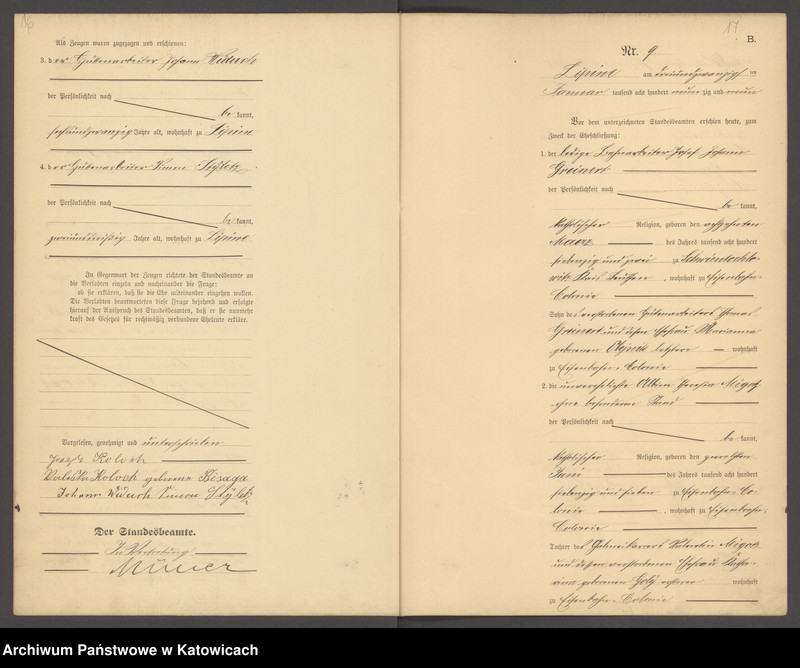 16
Als Zeugen waren zugezogen und erschienen:
3. der Hüttenarbeiter Johann Widuch
der Persönlichkeit nach
be kannt,
sechsundzwanzig Jahre alt, wohnhaft zu Lipine
4. der Hüttenarbeiter Simon Stÿletz
der Persönlichkeit nach
be kannt,
zweiunddreißig Jahre alt, wohnhaft zu Lipine
In Gegenwart der Zeugen richtete der Standesbeamte an
die Verlobten einzeln und nacheinander die Frage:
ob sie erklären, daß sie die Ehe miteinander eingehen wollen.
Die Verlobten beantworteten diese Frage bejahend und erfolgte
hierauf der Ausspruch des Standesbeamten, daß er sie nunmehr
kraft des Gesetzes für rechtmäßig verbundene Eheleute erkläre.
Vorgelesen, genehmigt und unterschrieben
Koloch
Koloch geborene Bisaga
Johann Widuch Simon Stÿletz
Der Standesbeamte.
In Vertretung
17
B.
Nr. 9.
Lipine am dreiundzwanzigsten
Januar tausend acht hundert neun zig und neun
Vor dem unterzeichneten Standesbeamten erschien heute, zum
Zweck der Eheschließung:
1. der ledige Bahnarbeiter Josef Johann
Greinert
der Persönlichkeit nach
be kannt,
katholischer Religion, geboren den
Maerz des Jahres tausend acht hundert
siebenzig und zwei zu Schwientochlo-
witz Kreis Beuthen, wohnhaft zu Eisenbahn-
Colonie
Sohn des verstorbenen Hüttenarbeiters Thomas
Greinert und dessen Ehefrau Marianna
geborenen letztere wohnhaft
zu Eisenbahn-Colonie
2. die unverehelichte Albine Theresia Migotz
ohne besonderen Stand
der Persönlichkeit nach
be kannt,
katholischer Religion, geboren den zwoelften
Juni des Jahres tausend acht hundert
siebenzig und sieben zu Eisenbahn-Co-
lonie, wohnhaft zu Eisenbahn-
Colonie
Tochter des Valentin Migotz
und dessen verstorbenen Ehefrau Katha-
rina geborenen ersterer wohnhaft
zu Eisenbahn-Colonie
Archiwum Państwowe w Katowicach